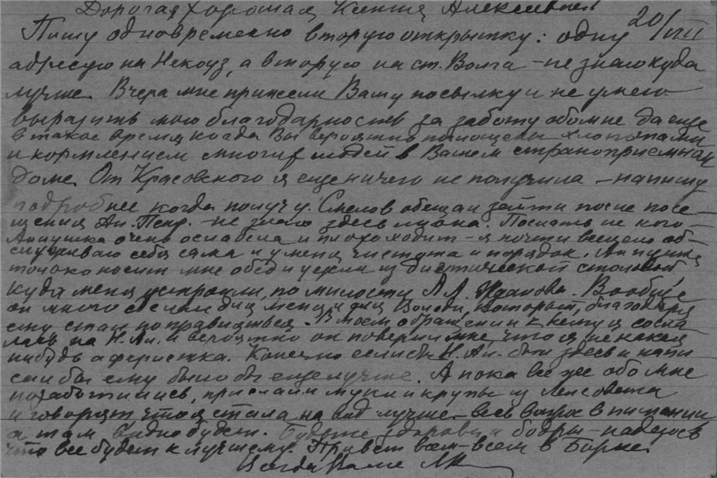 Дорогая хорошая Ксения Алексеевна
Пишу одновременно вторую открытку: одну 20/VII
адресую на Некоуз, а вторую на ст. Волга - не знаю куда
лучше. Вчера мне принесли Вашу посылку и не умею
выразить мою благодарность за заботу обо мне да еще
в такое время когда Вы вероятно поглощены хлопотами
и кормлением многих людей в Вашем странноприемном
доме. От Красовского я еще ничего не получила - напишу
подробнее когда получу. Смелов обещал зайти после посе-
щения Ан. Петр. - не знаю здесь ли она. Послать не кого
Аннушка очень ослабела и плохо ходит - я почти всецело об-
служиваю себя сама и у меня чистота и порядок. Аннушка
только носит мне обед и ужин из диетической столовой
куда меня устроили, по милости А.А. Вообще
он много сделал для меня и для Володи, который, благодаря
ему стал поправляться. В моем обращении к нему я сосла-
лась на Н. Ан. и вероятно он поверил мне, что я не какая
нибудь аферистка. Конечно если бы Н. Ан. был здесь и напи-
сал бы ему было бы еще лучше. А пока все же обо мне
позаботились, прислали муки и крупы из Ленсовета
и говорят что я стала на вид лучше - весь вопрос в питании
а там видно будет. Будьте здоровы и бодры - надеюсь
что все будет к лучшему. Привет всем - всем в Борке.
Всегда Ваша